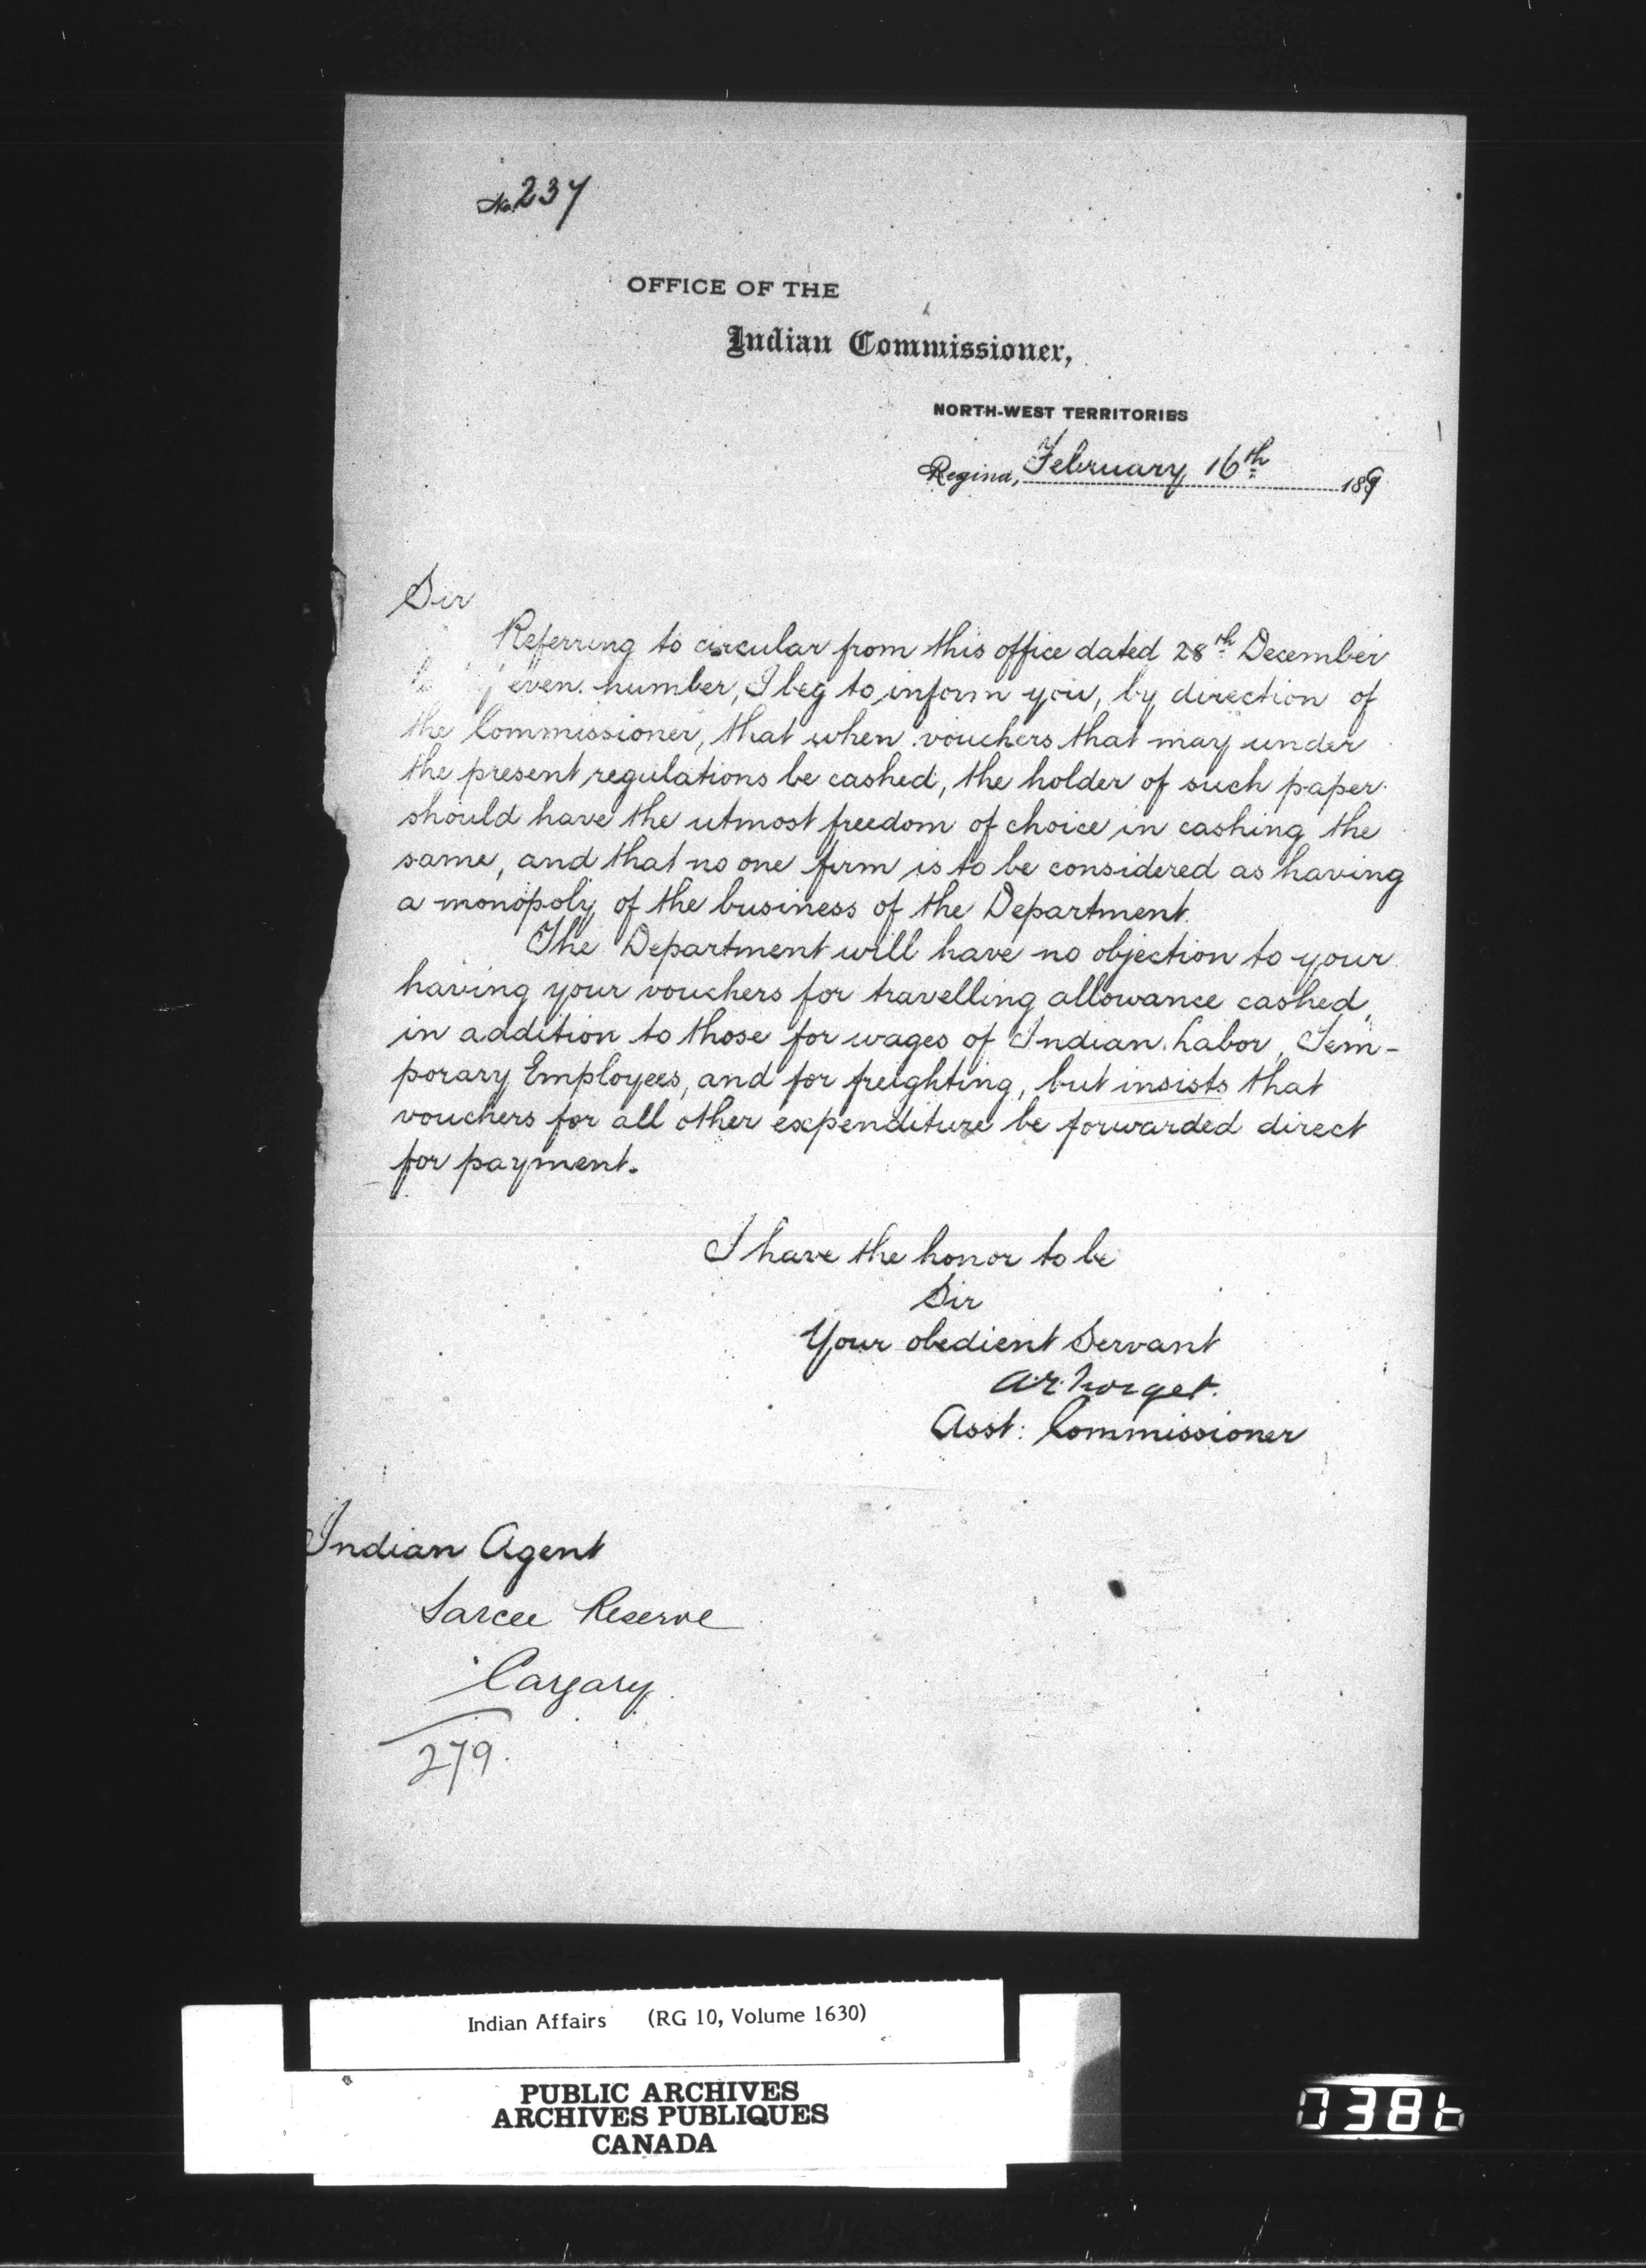 No. 237
OFFICE OF THE
Indian Commissioner,
NORTH-WEST TERRITORIES
Regina, February 16th 189
Sir
Referring to circular from this office dated 28th December
even number, I beg to inform you, by direction of
the Commissioner, that when vouchers that may under
the present regulations be cashed, the holder of such paper
should have the utmost freedom of choice in cashing the
same, and that no one firm is to be considered as having
a monopoly of the business of the Department.
The Department will have no objection to your
having your vouchers for travelling allowance cashed,
in addition to those for wages of Indian Labor, Tem-
porary Employees, and for freighting, but insists that
vouchers for all other expenditure be forwarded direct
for payment.
I have the honor to be
Sir
Your obedient Servant
A. E. Forget.
Asst: Commissioner
Indian Agent
Sarcee Reserve
Calgary
279.
Indian Affairs (RG 10, Volume 1630)
PUBLIC ARCHIVES
ARCHIVES PUBLIQUES
CANADA